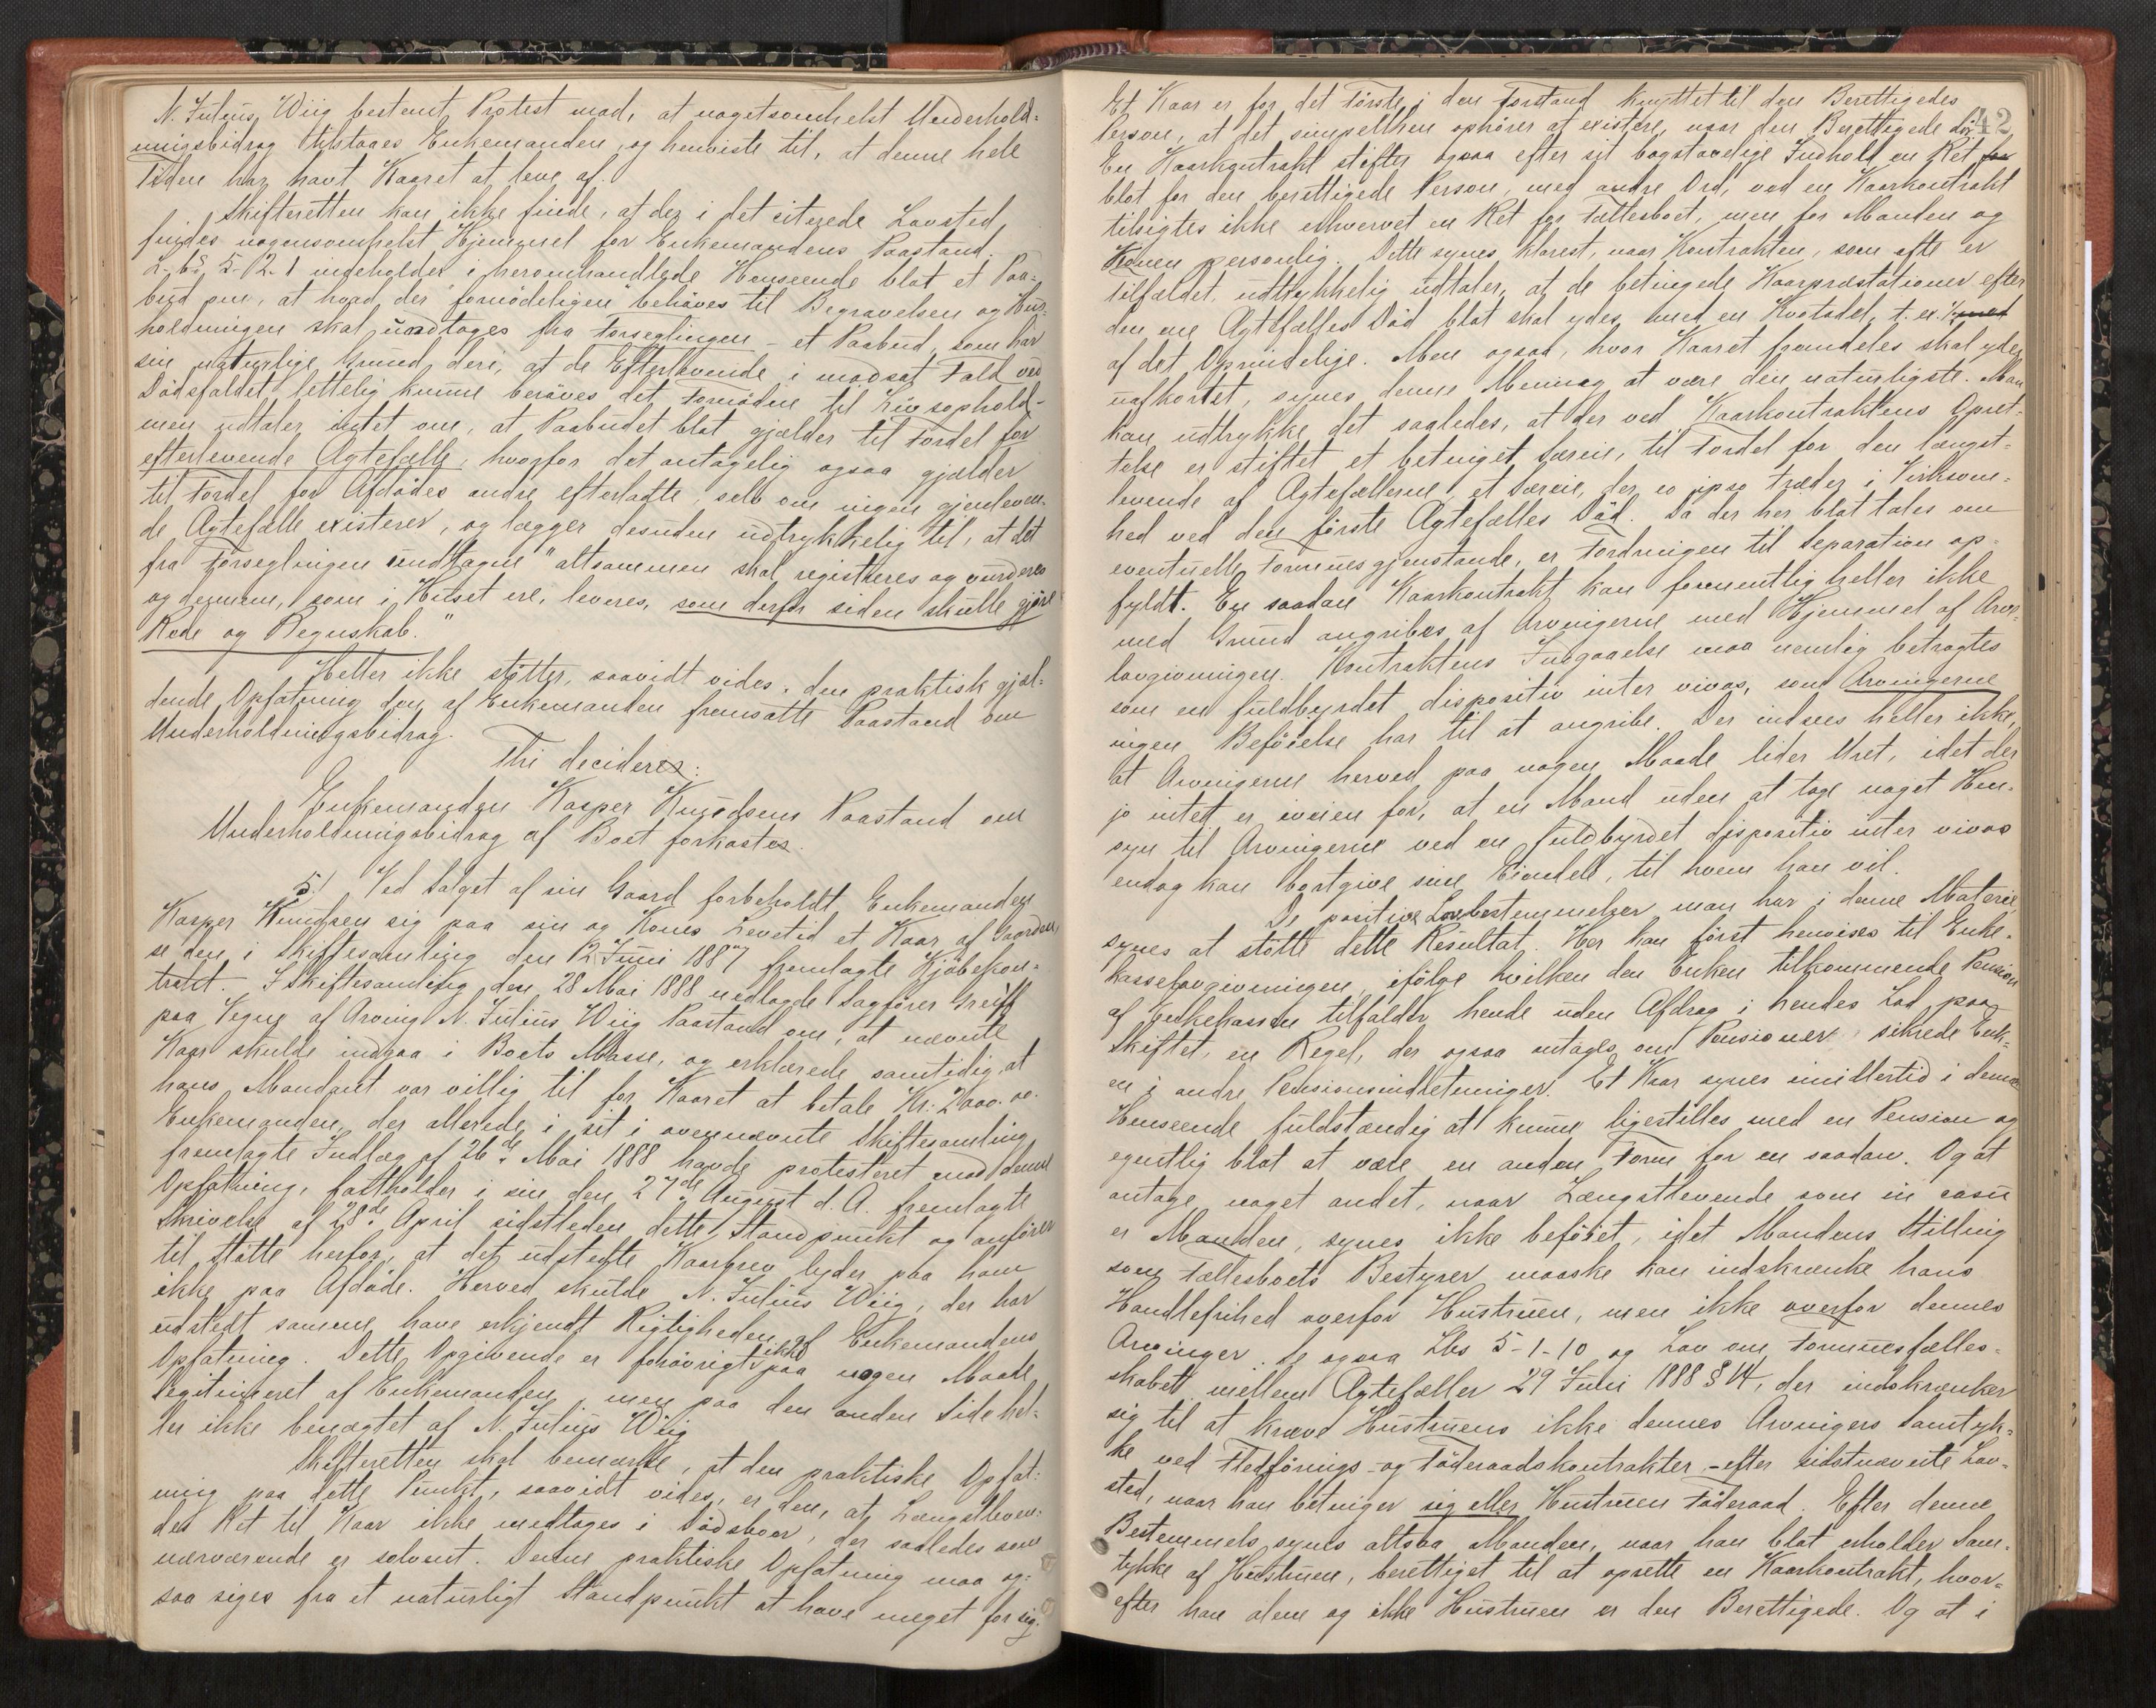 N. Julius Wiig bestemt Protest mod, at nogetsomhelst Underhold-
ningsbidrag tilstaaes Enkemanden, og henviste til, at denne hele
Tiden har havt Kaaret at leve af.
Skifteretten kan ikke finde, at der i det citerede Lovsted
findes nogensomhelst Hjemmel for Enkemandens Paastand.
L. bs 5-12-1 indeholder i heromhandlede Henseende blot et Paa-
bud om, at hvad der "fornödeligen" behöves til Begravelsen og Hus-
holdningen skal undtages fra Forseglingen - et Paabud, som har
sin naturlige Grund deri, at de Efterlevende i modsat Fald ved
Dödsfaldet lettelig kunne beröves det Fornödne til Livsophold -
men udtaler intet om, at Paabudet blot gjælder til Fordel for
efterlevende Ægtefælle, hvorfor det antagelig ogsaa gjælder
til Fordel for Afdödes andre efterladte selv om ingen gjenleven-
de Ægtefælle existerer, og lægger desuden udtrykkelig til, at det
fra Forseglingen undtagne "altsammen skal registreres og vurderes
og dennem, som i Huset ere, leveres, som derfor siden skulle gjöre
Rede og Regnskab."
Heller ikke stötter, saavidt vides, den praktisk gjæl-
dende Opfatning den af Enkemanden fremsatte Paastand om
Underholdningsbidrag.
Thi decideres:
Enkemanden Kasper Knudsens Paastand om
Underholdningsbidrag af Boet forkastes.
5. Ved Salget af sin Gaard forbeholdt Enkemanden
Kasper Knudsen sig paa sin og Kones Levetid et Kaar af Gaarden,
se den i Skiftesamling den 12 Juni 1887 fremlagte Kjöbekon-
trakt. I Skiftesamling den 28 Mai 1888 nedlagde Sagförer Greiff
paa Vegne af Arving N. Julius Wiig Paastand om, at nævnte
Kaar skulde indgaa i Boets Masse, og erklærede samtidig, at
hans Mandant var villig til for Kaaret at betale Kr. 2000.00.
Enkemanden, der allerede i sit i ovennævnte Skiftesamling
fremlagte Indlæg af 26de Mai 1888 havde protesteret mod denne
Opfatning, fastholder i sin den 27de August d. A. fremlagte
Skrivelse af 28de April sidstleden dette Standpunkt og anförer
til Stötte herfor, at det udstedte Kaarbrev lyder paa ham
ikke paa Afdöde. Herved skulde N. Julius Wiig, der har
udstedt samme have erkjendt Rigtigheden af Enkemandens
Opfatning. Dette Opgivende er forövrigt ikke paa nogen Maade
legitimeret af Enkemanden, men paa den anden Side hel-
ler ikke benægtet af N. Julius Wiig
Skifteretten skal bemærke, at den praktiske Opfat-
ning paa dette Punkt, saavidt vides, er den, at Længstleven-
des Ret til Kaar ikke medtages i Dödsboer, der saaledes som
nærværende er solvent. Denne praktiske Opfatning maa og-
saa siges fra et naturligt Standpunkt at have meget for sig.
42
Et Kaar er for det förste i den Forstand knyttet til den Berettigedes
Person, at det simpelthen ophörer at existere, naar den Berettigede dör.
En Kaarkontrakt stifter ogsaa efter sit bogstavelige Indhold en Ret for
blot for den berettigede Person, med andre Ord, ved en Kaarkontrakt
tilsigtes ikke erhvervet en Ret for Fællesboet, men for Manden og
Konen personlig. Dette synes klarest, naar Kontrakten, som ofte er
Tilfældet, udtrykkelig udtaler, at de betingede Kaarpræstationer efter
den ene Ægtefælles Död blot skal ydes med en Kvotadel, t. ex. 1/2
af det Oprindelige. Men ogsaa, hvor Kaaret fremdeles skal ydes
uafkortet, synes denne Mening at være den naturligste. Man
kan udtrykke det saaledes, at der ved Kaarkontraktens Opret-
telse er stiftet et betinget Særeie, til Fordel for den længst-
levende af Ægtefællerne, et Særeie, der eo ipso træder i Virksom-
hed ved den förste Ægtefælles Död. Da der her blot tales om
eventuelle Formuesgjenstande, er Fordringen til Separation op-
fyldt. En saadan Kaarkontrakt kan formentlig heller ikke
med Grund angribes af Arvingerne med Hjemmel af Arve-
lovgivningen. Kontraktens Indgaaelse maa nemlig betragtes
som en fuldbyrdet dispositiv inter vivos, som Arvingerne
ingen Beföielse har til at angribe. Der indsees heller ikke,
at Arvingerne herved paa nogen Maade lider Uret, idet der
jo intet er iveien for, at en Mand uden at tage noget Hen-
syn til Arvingerne ved en fuldbyrdet dispositiv inter vivos
endog kan bortgive sine Eiendele, til hvem han vil.
De positive Lovbestemmelser man har i denne Materie
synes at stötte dette Resultat. Her kan först henvises til Enke-
kasselovgivningen, ifölge hvilken den Enken tilkommende Pension
af Enkekassen tilfalder hende uden Afdrag i hendes Lod paa
Skiftet, en Regel, der ogsaa antages om Pensioner, sikrede Enk-
en i andre Pensionsindretninger. Et Kaar synes imidlertid i denne
Henseende fuldstændig at kunne ligestilles med en Pension og
egentlig blot at være en anden Form for en saadan. Og at
antage noget andet, naar Længstlevende som in casu
er Manden, synes ikke beföiet, idet Mandens Stilling
som Fællesboets Bestyrer maaske kan indskrænke hans
Handlefrihed overfor Hustruen, men ikke overfor dennes
Arvinger. Se ogsaa Lbs 5-1-10 og Lov om Formuesfælles-
skabet mellem Ægtefæller 29 Juni 1888 § 14, der indskrænker
sig til at kræve Hustruens ikke dennes Arvingers Samtyk-
ke ved Fledförings- og Föderaadskontrakter - efter sidstnævnte Lov-
sted, naar han betinger sig eller Hustruen Föderaad. Efter denne
Bestemmels synes altsaa Manden, naar han blot erholder Sam-
tykke af Hustruen, berettiget til at oprette en Kaarkontrakt, hvor-
efter han alene og ikke Hustruen er den Berettigede. Og at i